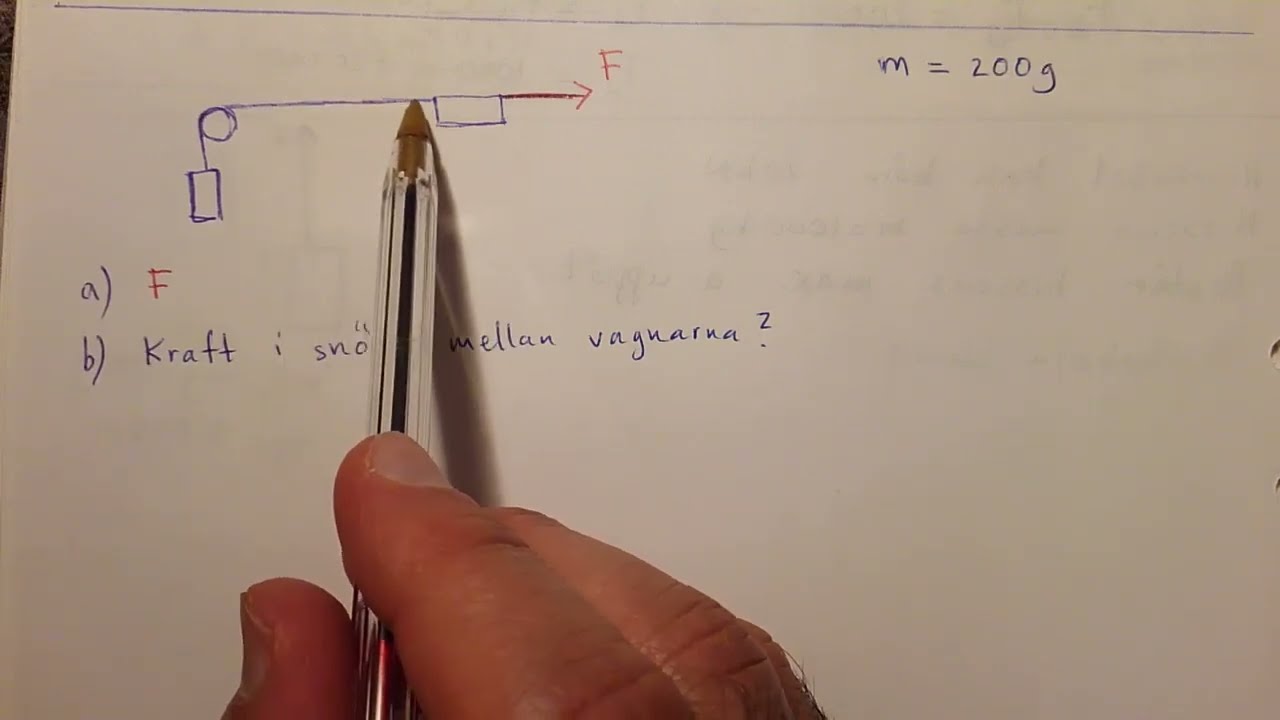 F
m = 200g
a) F
b) Kraft i snö mellan vagnarna?